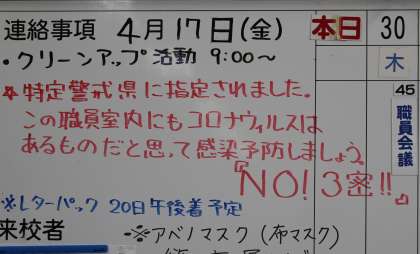 連絡事項 4月17日(金) 本日 30
・クリーンアップ活動 9:00～
木
特定警戒県に指定されました。
45
この職員室内にもコロナウィルスは
職員会議
あるものだと思って感染予防しましょう。
『NO!3密!!』
※レターパック 20日午後着予定
来校者 ・※アベノマスク(布マスク)